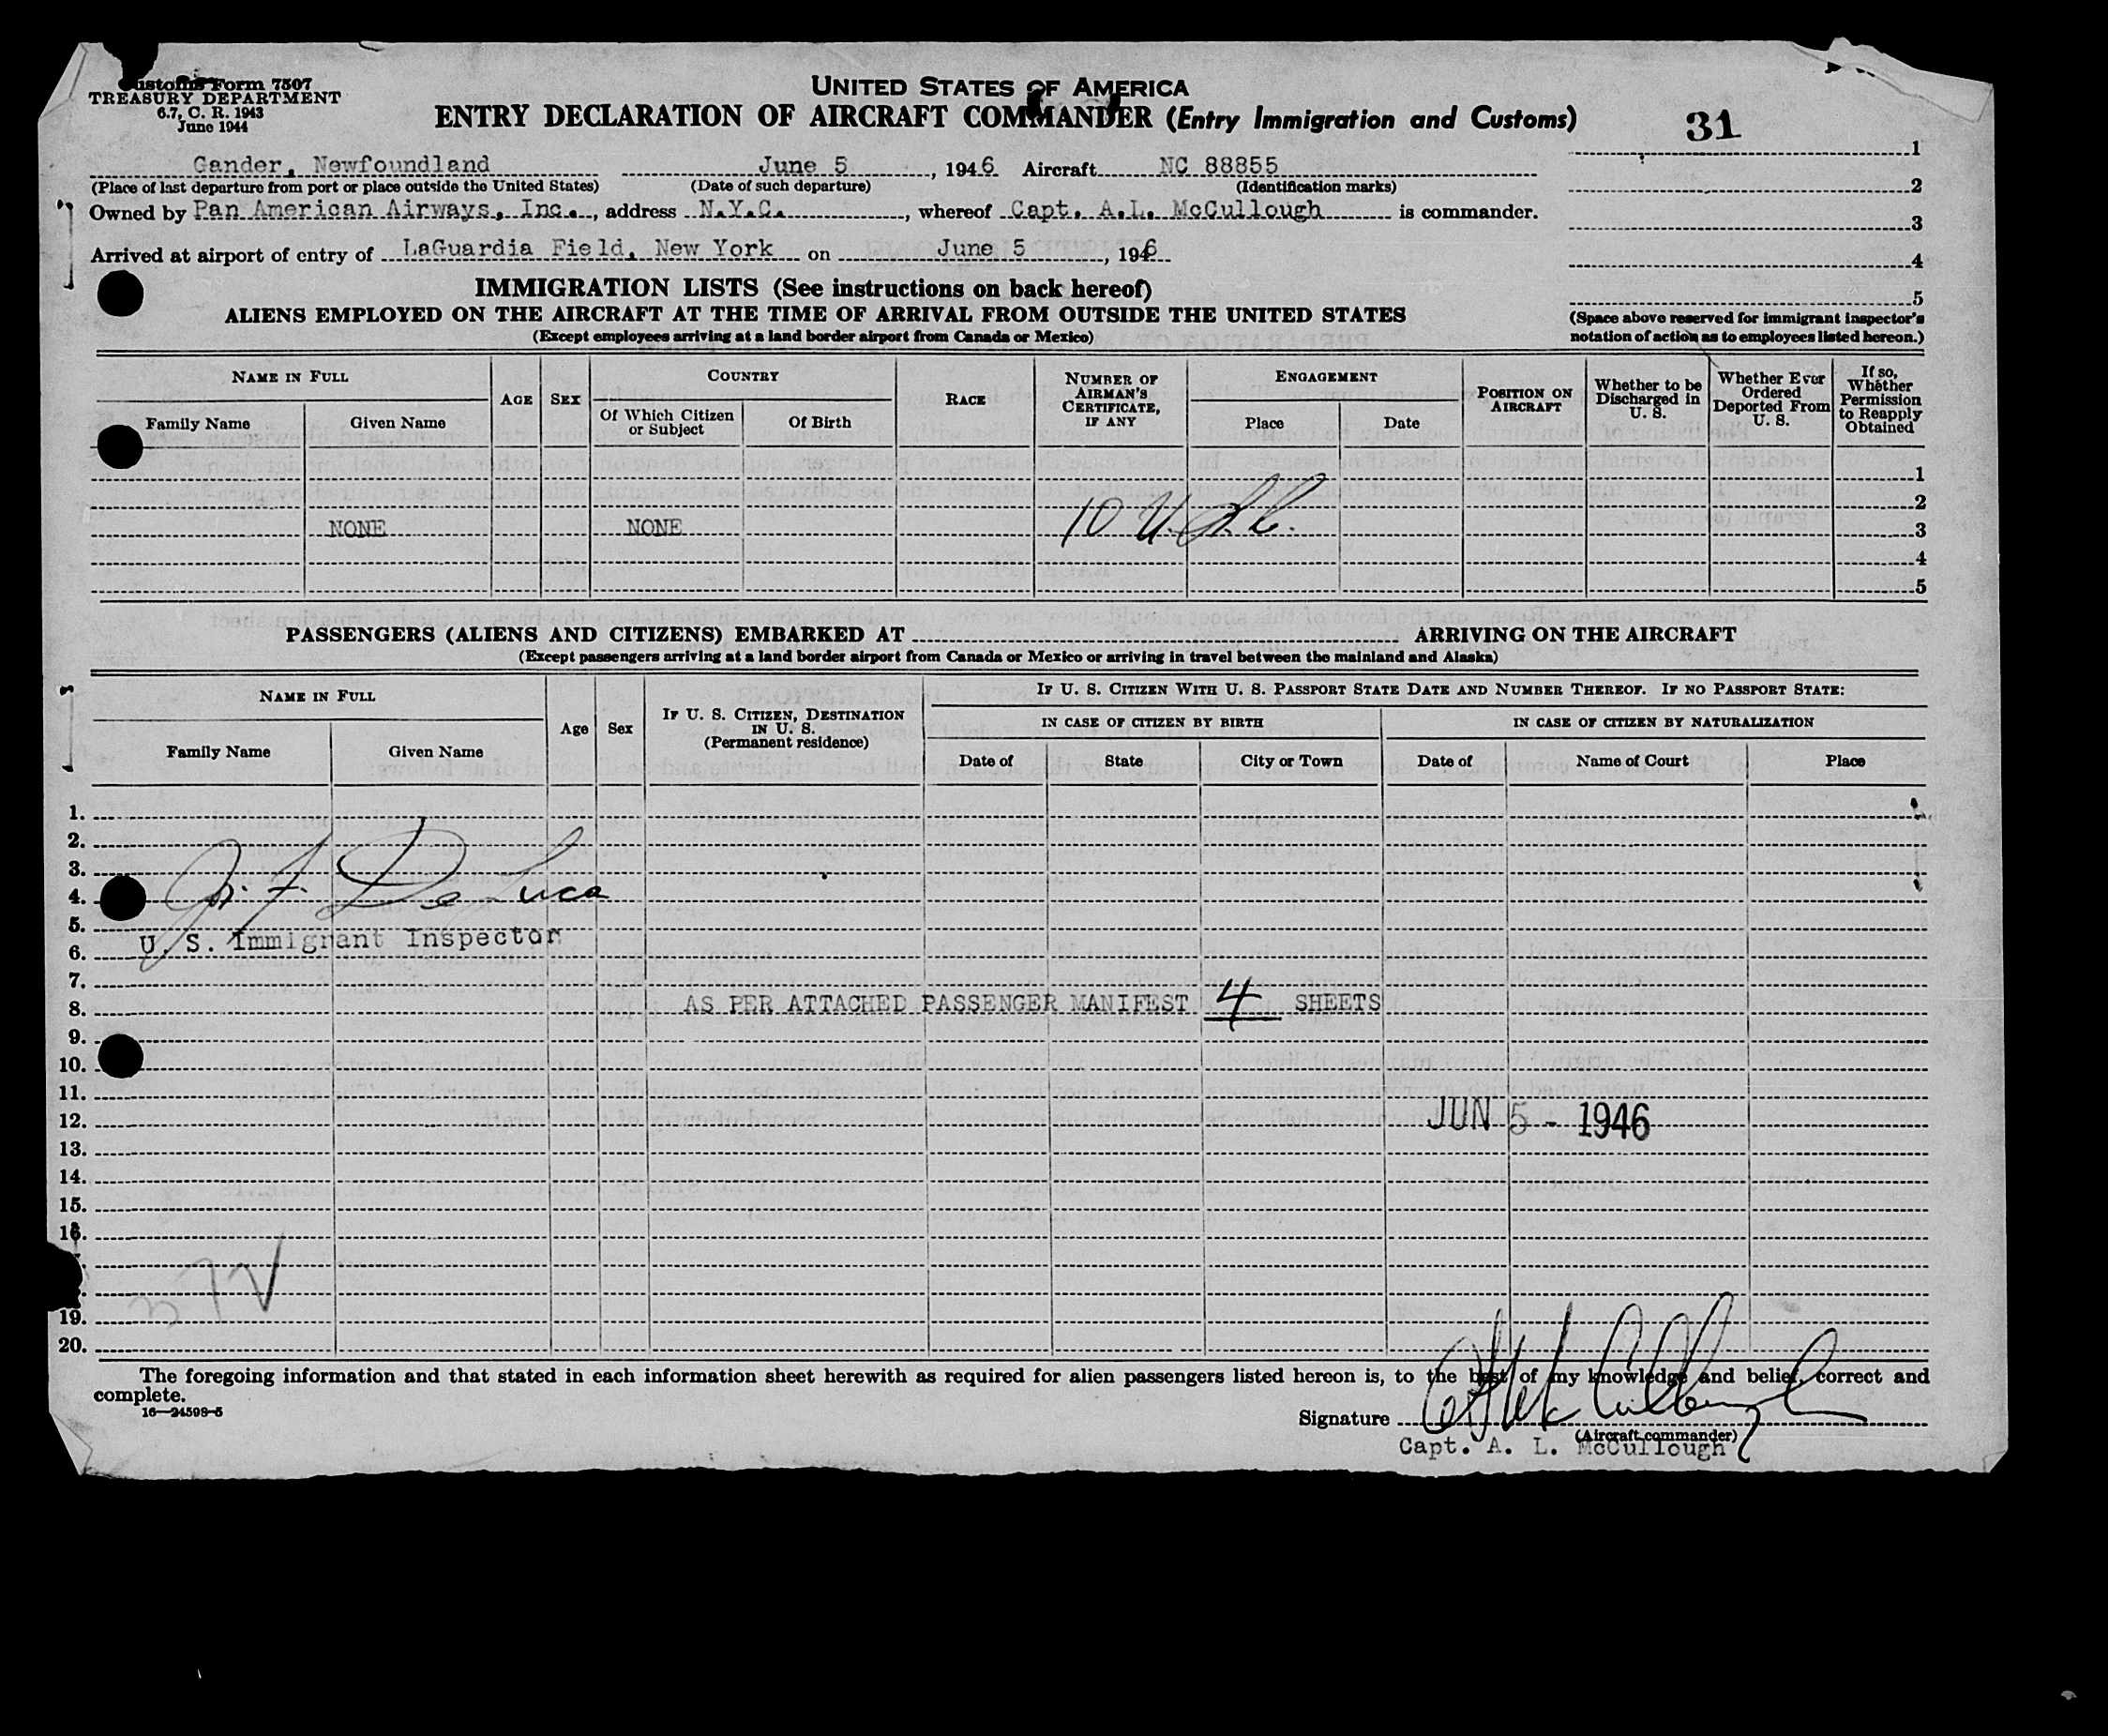 Customs Form 7507
TREASURY DEPARTMENT
6.7, C. R. 1943
June 1944
UNITED STATES OF AMERICA
ENTRY DECLARATION OF AIRCRAFT COMMANDER (Entry Immigration and Customs)
31
Gander, Newfoundland June 5, 1946 Aircraft NC 88855
(Place of last departure from port or place outside the United States) (Date of such departure) (Identification marks)
Owned by Pan American Airways, Inc., address N.Y.C., whereof Capt. A.L. McCullough is commander.
Arrived at airport of entry of LaGuardia Field, New York on June 5, 1946
1
2
3
4
5
(Space above reserved for immigrant inspector's
notation of action as to employees listed hereon.)
IMMIGRATION LISTS (See instructions on back hereof)
ALIENS EMPLOYED ON THE AIRCRAFT AT THE TIME OF ARRIVAL FROM OUTSIDE THE UNITED STATES
(Except employees arriving at a land border airport from Canada or Mexico)
NAME IN FULL
Family Name Given Name
AGE
SEX
COUNTRY
Of Which Citizen
or Subject
Of Birth
RACE
NUMBER OF
AIRMAN'S
CERTIFICATE,
IF ANY
ENGAGEMENT
Place Date
POSITION ON
AIRCRAFT
Whether to be
Discharged in
U. S.
Whether Ever
Ordered
Deported From
U. S.
If so,
Whether
Permission
to Reapply
Obtained
1
2
NONE NONE 10 U.S.C. 3
4
5
PASSENGERS (ALIENS AND CITIZENS) EMBARKED AT ARRIVING ON THE AIRCRAFT
(Except passengers arriving at a land border airport from Canada or Mexico or arriving in travel between the mainland and Alaska)
NAME IN FULL
Family Name Given Name
Age
Sex
IF U. S. CITIZEN, DESTINATION
IN U. S.
(Permanent residence)
IF U. S. CITIZEN WITH U. S. PASSPORT STATE DATE AND NUMBER THEREOF. IF NO PASSPORT STATE:
IN CASE OF CITIZEN BY BIRTH
IN CASE OF CITIZEN BY NATURALIZATION
Date of State City or Town Date of Name of Court Place
1.
2.
3.
4. De Luca
5.
U. S. Immigrant Inspector
6.
7.
8. AS PER ATTACHED PASSENGER MANIFEST 4 SHEETS
9.
10.
11.
12. JUN 5 - 1946
13.
14.
15.
16.
19.
20.
The foregoing information and that stated in each information sheet herewith as required for alien passengers listed hereon is, to the best of my knowledge and belief, correct and
complete.
16—24598-5
Signature A L McCullough
(Aircraft commander)
Capt. A. L. McCullough